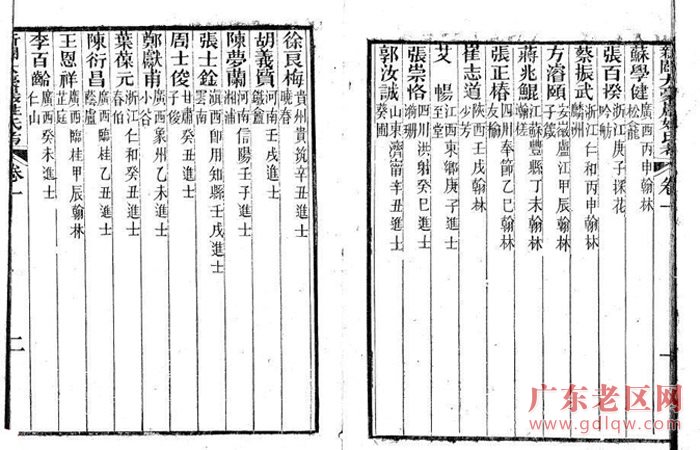 蘇學健 松龍 廣西丙申翰林
張百揆 吟舫 浙江庚子探花
蔡振武 麟洲 浙江仁和丙申翰林
方濬頤 子箴 安徽盧江甲辰翰林
蔣兆鯤 瀚槎 江蘇豐縣丁未翰林
張正椿 友榆 四川奉節乙巳翰林
崔志道 少芳 陝西壬戌翰林
艾暢 至堂 江西東鄉庚子進士
張崇恪 四川洪射癸巳進士
郭汝誠 葵圃 山東濟甯辛丑進士
卷一
一
徐良梅 曉春 貴州貴筑辛丑進士
胡義質 河南壬戌進士
陳夢蘭 湘浦 河南信陽壬子進士
張士銓 雲南 滇西師用知縣壬戌進士
周士俊 子俊 甘肅癸丑進士
鄭獻甫 小谷 廣西象州乙未進士
葉葆元 春伯 浙江仁和癸丑進士
陳衍昌 廣西臨桂乙丑進士
王恩祥 芷庭 廣西臨桂甲辰翰林
李百齡 仁山 廣西癸未進士
卷一
二
广东老区网
www.gdlqw.com